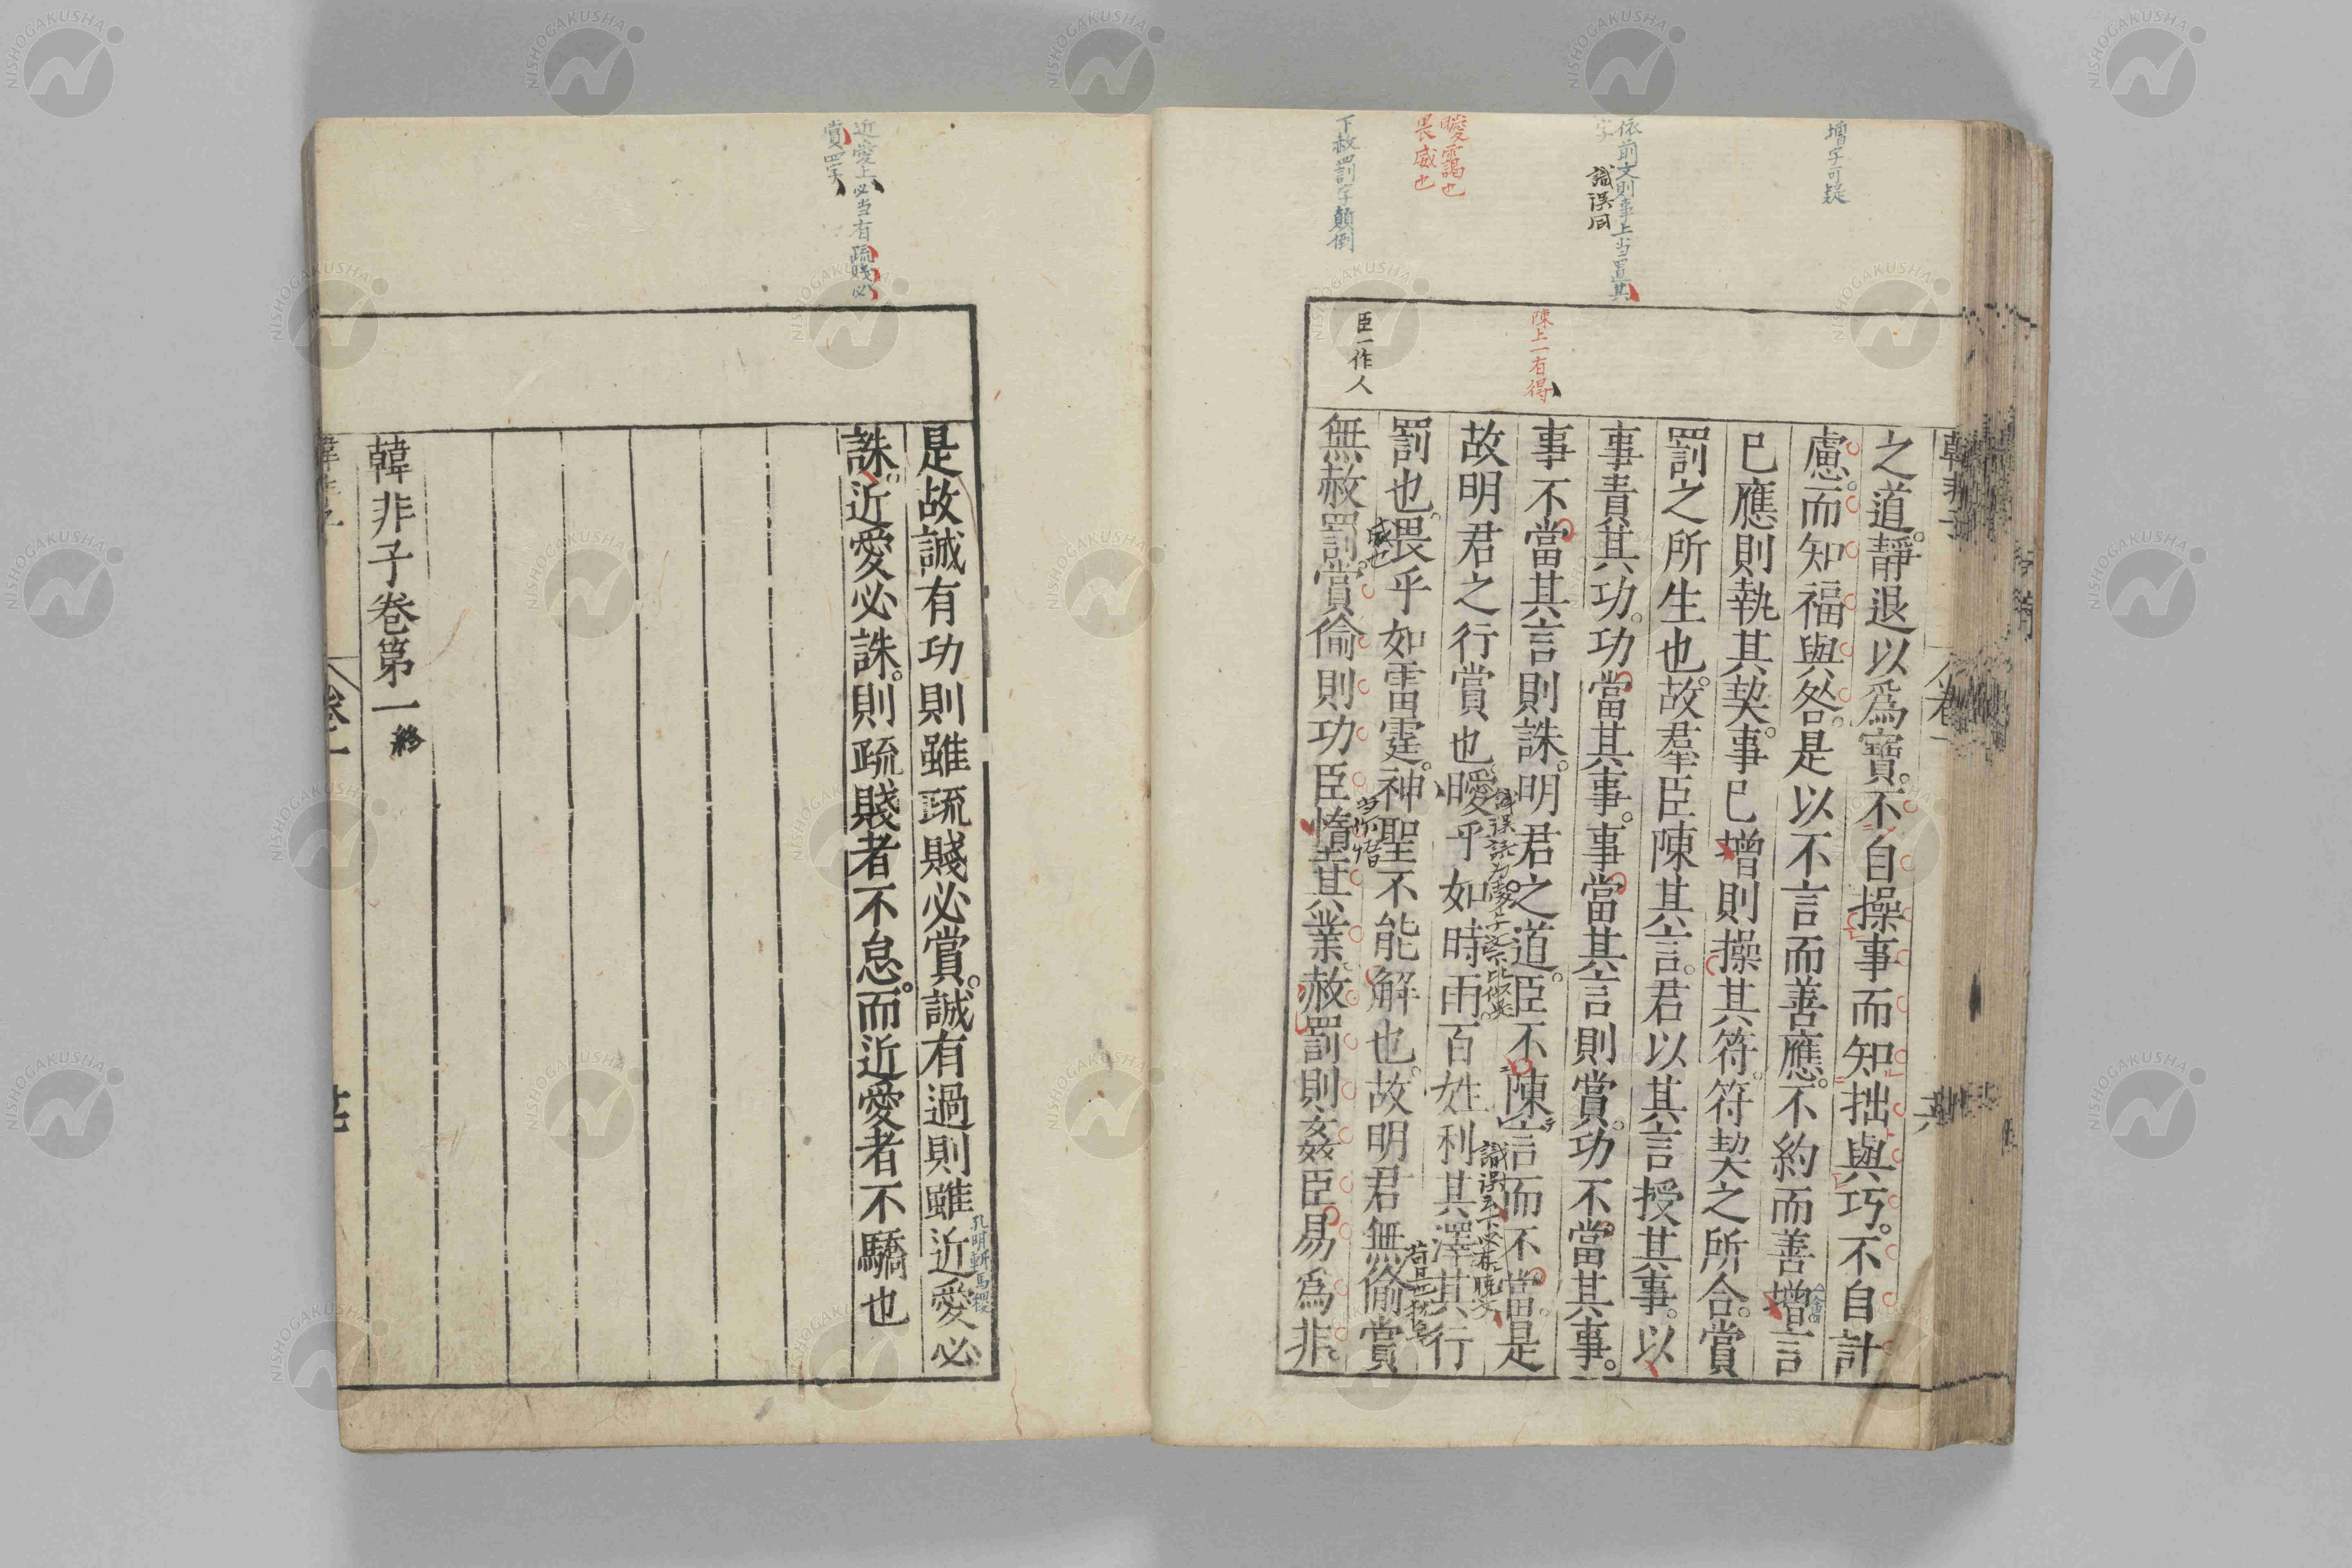 增字可疑
依前文則事上当置其
字
識誤同
曖靄也
畏威也
下赦罰字顛倒
陳上一有得
臣一作人
之道靜退以爲寶。不自操事而知拙與巧。不自計
慮。而知福與咎。是以不言而善應。不約而善增言
已應則執其契。事已增則操其符。符契之所合。賞
罰之所生也。故羣臣陳其言。君以其言授其事。以
事責其功。功當其事。事當其言則賞。功不當其事。
事不當其言則誅。明君之道。臣不陳言而不當。是
故明君之行賞也曖乎如時雨百姓利其澤其行
罰也。畏乎如雷霆。神聖不能解也。故明君無偷賞
威也
無赦罰。賞偷則功臣惰其業。赦罰則姦臣易爲非。
近愛上必当有疏賤必
賞四字
是故誠有功則雖疏賤必賞。誠有過則雖近愛必
孔明斬馬稷
誅。近愛必誅。則疏賤者不怠。而近愛者不驕也
韓非子卷第一終
NISHOGAKUSHA